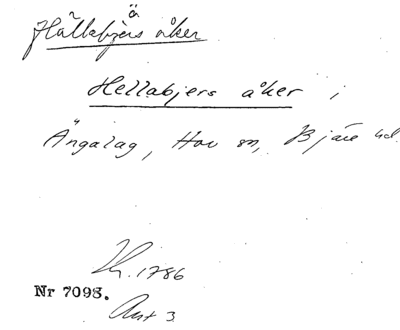 ä
Hållabjers åker
Hellabjers åker i
Ängalag, Hov sn, Bjäre hd.
Kr. 1786
Nr 7098.
Akt 3